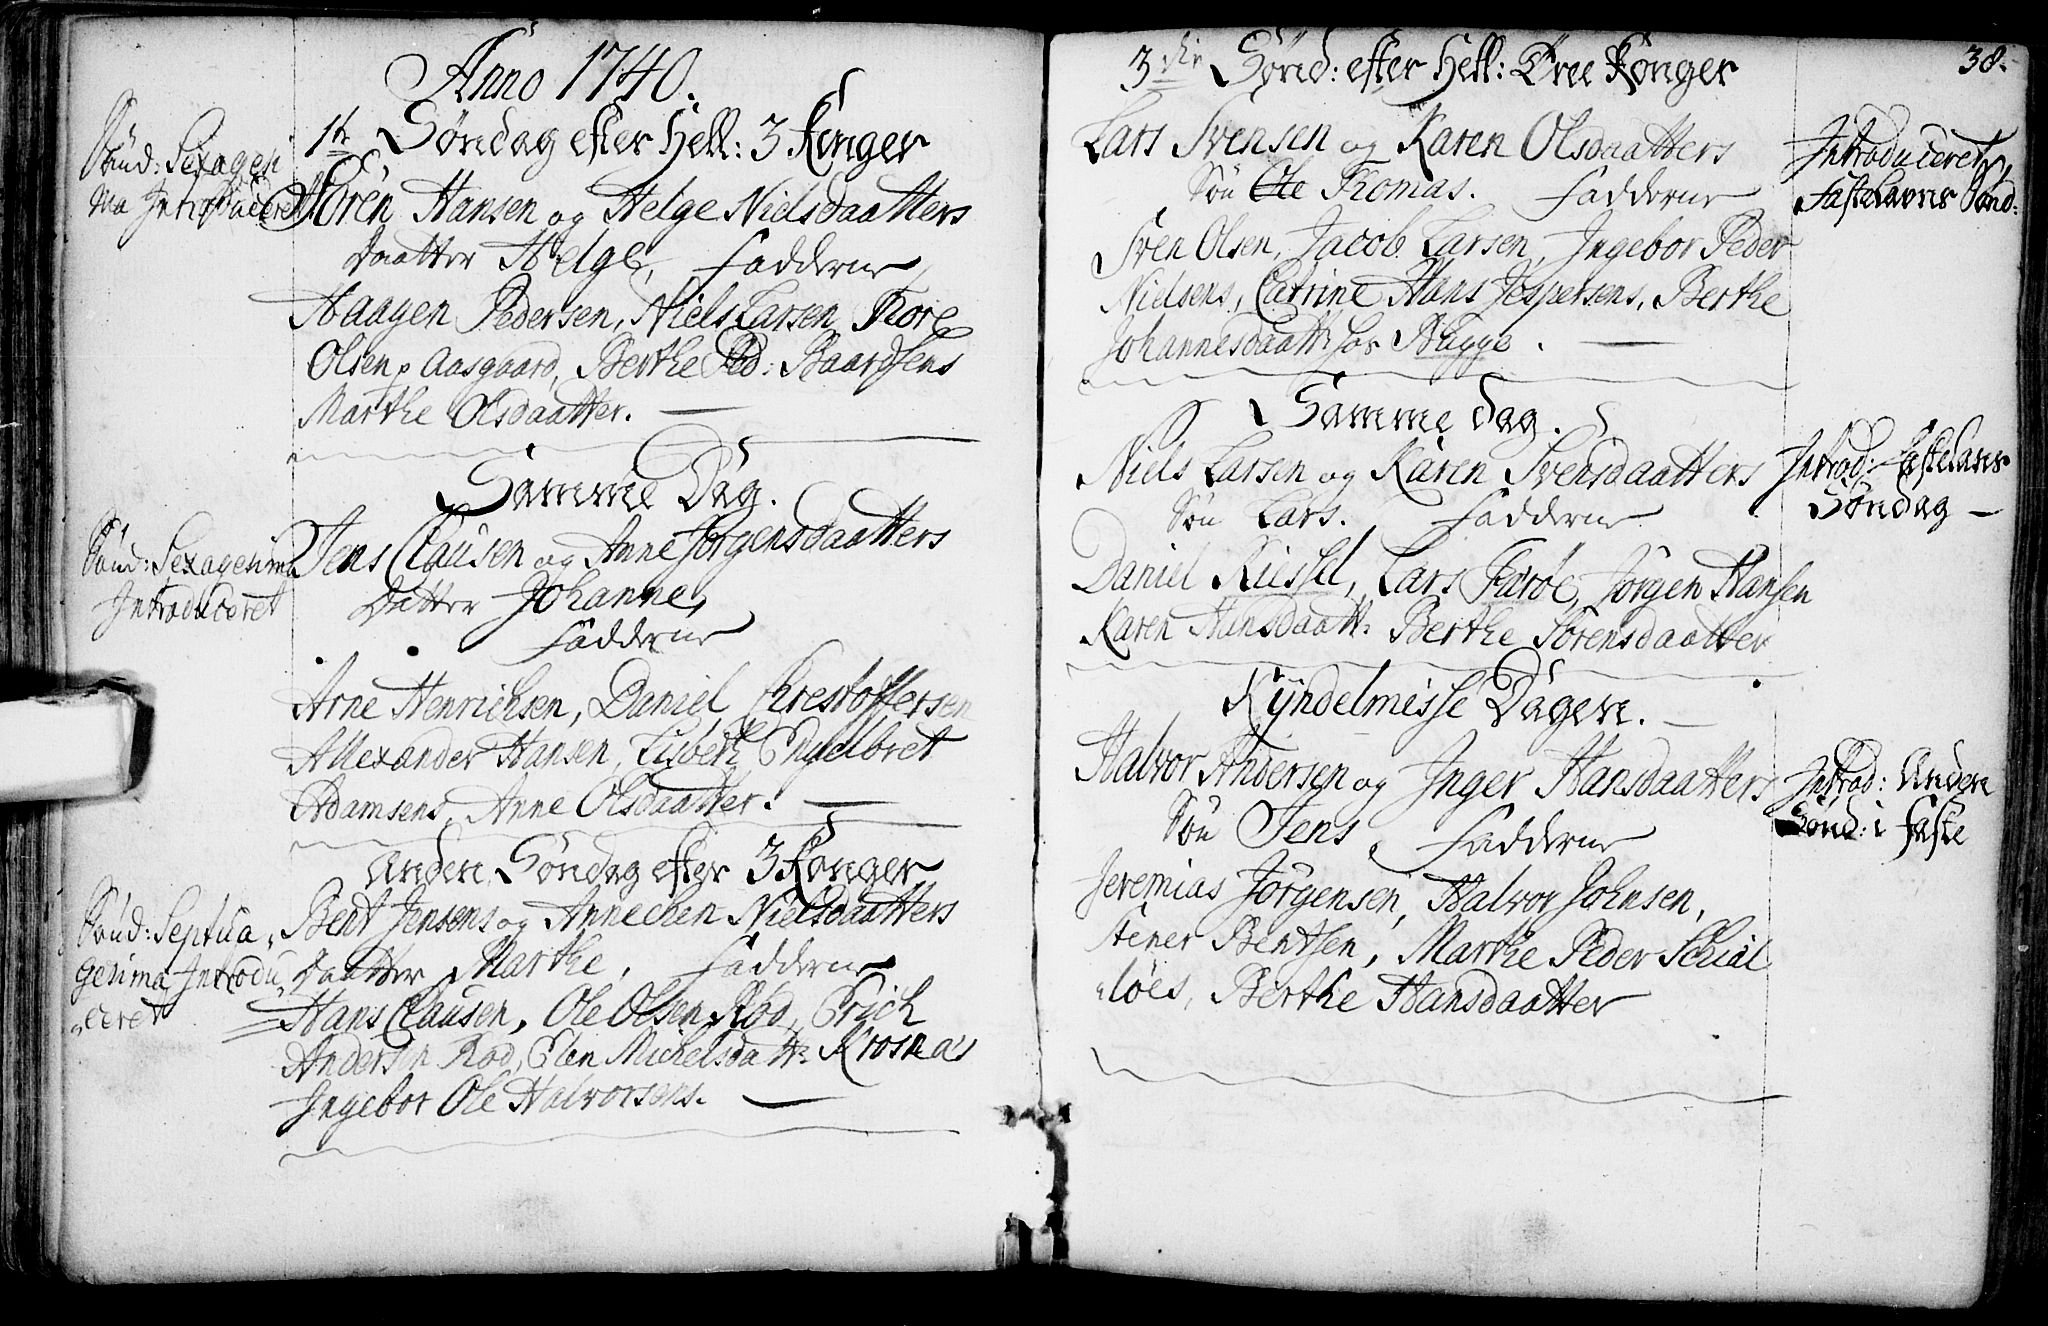 Anno 1740.
1te Søndag efter Hell: 3 Konger
Sönd: Sexagesi
ma Introduceret
Sören Hansen og Helge Nielsdaatters
Daatter Helge, Fadderne
Haagen Pedersen, Niels Larsen, Thore
Olsen p Aasgaard, Berthe Ped: Baardsens
Marthe Olsdaatter.
Samme Dag.
Sönd: Sexagesima
Introduceret
Jens Clausen og Anne Jörgensdaatters
Datter Johanne,
Fadderne
Arne Henrichsen, Daniel Christoffersen
Allexander Hansen, Lisbeth Engelbret
Adamsens, Anne Olsdaatter.
Anden Søndag efter 3 Konger
Sönd: Septua„
gesima Introdu
„ceret
Bent Jensens og Annechen Nielsdaatters
Daatter Marthe, Fadderne
Hans Clausen, Ole Olsen Röd, Erich
Andersen Röd, Elen Michelsdatt:
Ingebor Ole Halvorsens.
38.
3die Sønd: efter Hell: Tree Konger
Lars Svensen og Karen Olsdaatters
Sön Ole Thomas. Fadderne
Introduceret
Fastelavns Sönd:
Sven Olsen, Jacob Larsen, Ingebor Peder
Nielsens, Catrine Hans Jespersens, Berthe
Johannesdaatt: hos Bagge.
Samme Dag.
Niels Larsen og Karen Svensdaatters
Sön Lars. Fadderne
Introd: Fastelavns
Søndag
Daniel Kiessel, Lars Færöe, Jörgen Hansen
Karen Hansdaatt: Berthe Sörensdaatter
Kyndelmisse Dagen.
Halvor Andersen og Inger Hansdaatters
Sön Jens, Fadderne
Introd: Anden
Sönd: i Faste
Jeremias Jörgensen, Halvor Johnsen,
Stener Bentsen, Marthe Peder Schial
„löes, Berthe Hansdaatter